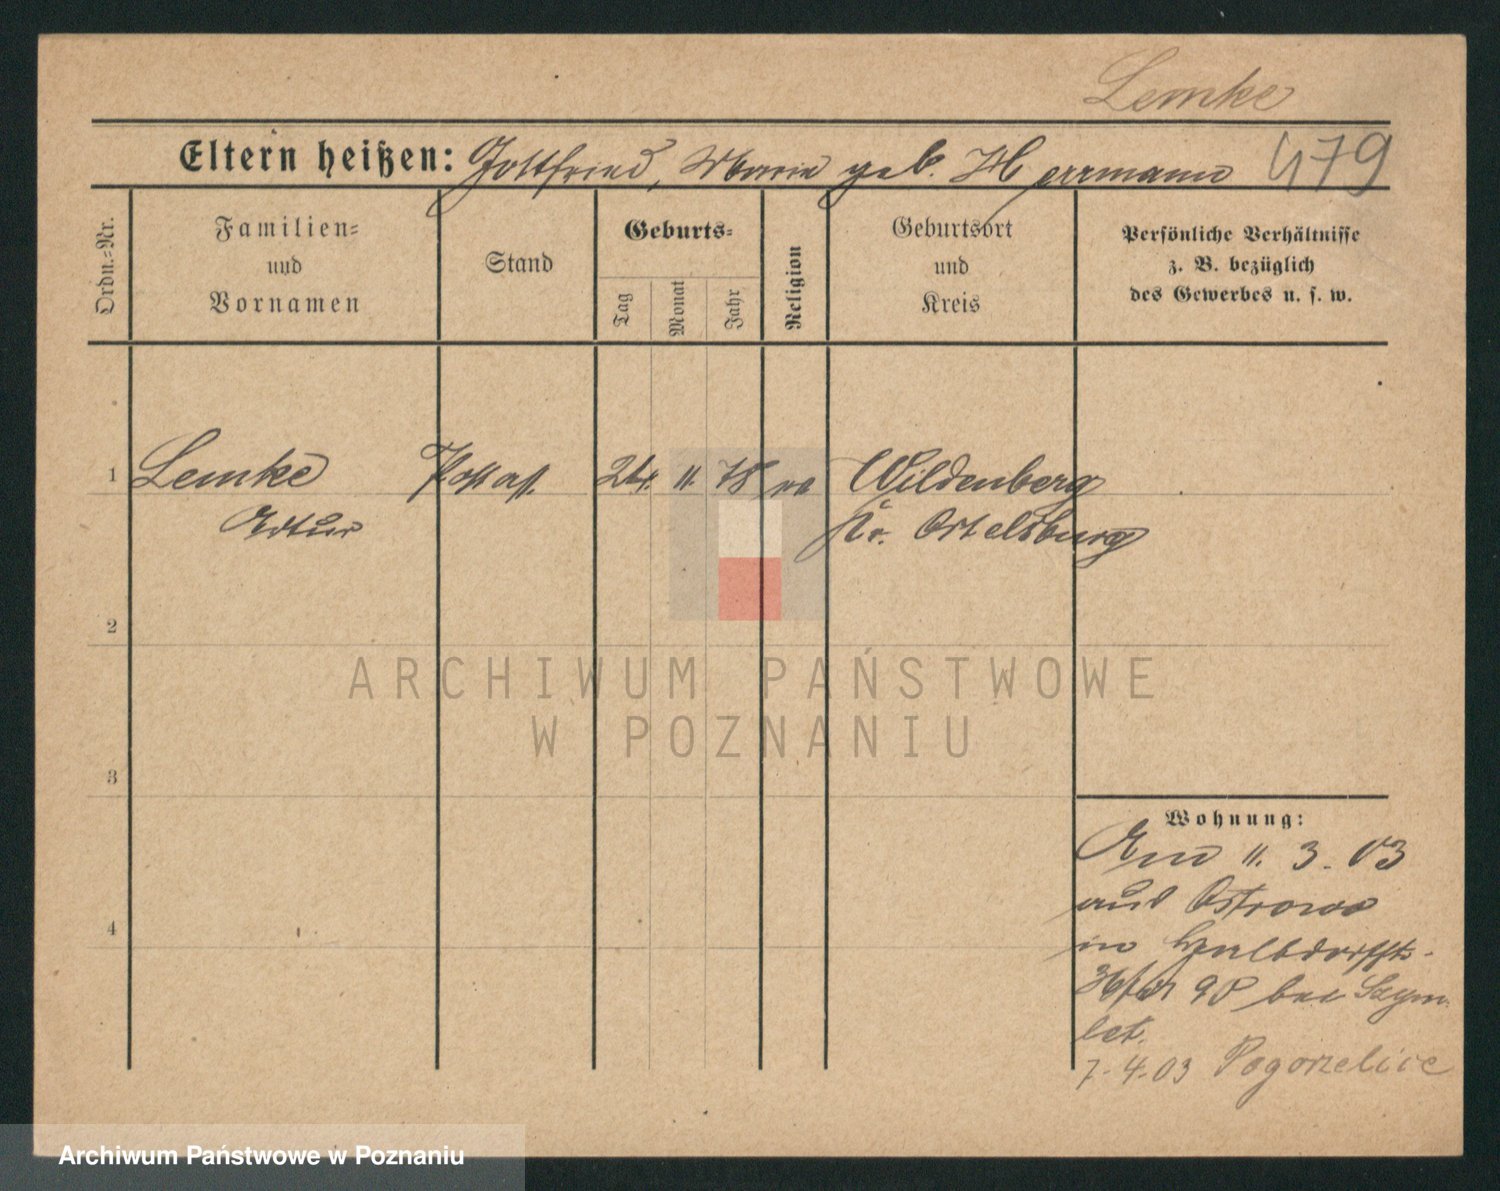 Lemke
Eltern heißen: Gottfried, Marie geb. Herrmann 479
Ordn.=Nr.
Familien=
und
Vornamen
Stand
Geburts=
Tag
Monat
Jahr
Religion
Geburtsort
und
Kreis
Persönliche Verhältnisse
z. B. bezüglich
des Gewerbes u. s. w.
1 Lemke Postass. 24. 11. 78 Wildenberg
Artur Kr. Ortelsburg
2
3
4
ARCHIWUM PAŃSTWOWE
W POZNANIU
Wohnung:
11. 3. 03
aus Ostrowo
in
90 bei Szym-
7. 4. 03 Pogorzelice
Archiwum Państwowe w Poznaniu